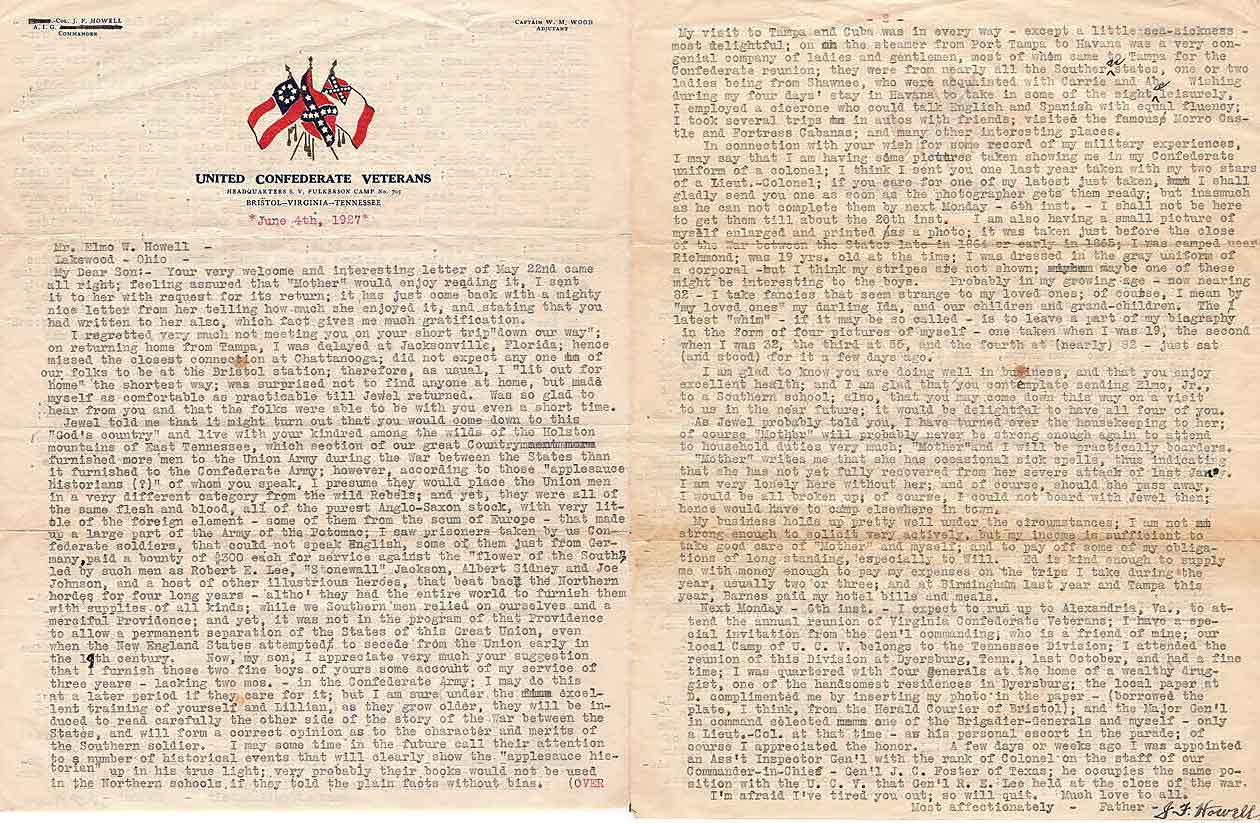 -Col. J. F. HOWELL
A. I. G.
COMMANDER
CAPTAIN W. M. WOOD
ADJUTANT
UNITED CONFEDERATE VETERANS
HEADQUARTERS S. V. FULKERSON CAMP No. 705
BRISTOL—VIRGINIA—TENNESSEE
*June 4th, 1927*
Mr. Elmo W. Howell -
Lakewood - Ohio -
My Dear Son:- Your very welcome and interesting letter of May 22nd came
all right; feeling assured that "Mother" would enjoy reading it, I sent
it to her with request for its return; it has just come back with a mighty
nice letter from her telling how much she enjoyed it, and stating that you
had written to her also, which fact gives me much gratification.
I regretted very much not meeting you on your short trip"down our way";
on returning home from Tampa, I was delayed at Jacksonville, Florida; hence
missed the closest connection at Chattanooga; did not expect any one of
our folks to be at the Bristol station; therefore, as usual, I "lit out for
home" the shortest way; was surprised not to find anyone at home, but made
myself as comfortable as practicable till Jewel returned. Was so glad to
hear from you and that the folks were able to be with you even a short time.
Jewel told me that it might turn out that you would come down to this
"God's country" and live with your kindred among the wilds of the Holston
mountains of East Tennessee, which section of our great Country
furnished more men to the Union Army during the War between the States than
it furnished to the Confederate Army; however, according to those "applesauce
historians (?)" of whom you speak, I presume they would place the Union men
in a very different category from the wild Rebels; and yet, they were all of
the same flesh and blood, all of the purest Anglo-Saxon stock, with very lit-
tle of the foreign element - some of them from the scum of Europe - that made
up a large part of the Army of the Potomac; I saw prisoners taken by us Con-
federate soldiers, that could not speak English, some of them just from Ger-
many,paid a bounty of $300 each for service against the "flower of the South",
led by such men as Robert E. Lee, "Stonewall" Jackson, Albert Sidney and Joe
Johnson, and a host of other illustrious heroes, that beat back the Northern
hordes for four long years - altho' they had the entire world to furnish them
with supplies of all kinds; while we Southern men relied on ourselves and a
merciful Providence; and yet, it was not in the program of that Providence
to allow a permanent separation of the States of this Great Union, even
when the New England States attempted to secede from the Union early in
the 19th century. Now, my son, I appreciate very much your suggestion
that I furnish those two fine boys of yours some account of my service of
three years - lacking two mos. - in the Confederate Army; I may do this
at a later period if they care for it; but I am sure under the excel-
lent training of yourself and Lillian, as they grow older, they will be in-
duced to read carefully the other side of the story of the War between the
States, and will form a correct opinion as to the character and merits of
the Southern soldier. I may some time in the future call their attention
to a number of historical events that will clearly show the "applesauce his-
torian" up in his true light; very probably their books would not be used
in the Northern schools if they told the plain facts without bias. (OVER
- 2 -
My visit to Tampa and Cuba was in every way - except a little sea-sickness -
most delightful; on the steamer from Port Tampa to Havana was a very con-
genial company of ladies and gentlemen, most of whom came to Tampa for the
Confederate reunion; they were from nearly all the Southern states, one or two
ladies being from Shawnee, who were acquainted with Carrie and Abe. Wishing
during my four days' stay in Havana to take in some of the sights leisurely,
I employed a cicerone who could talk English and Spanish with equal fluency;
I took several trips in autos with friends; visited the famous Morro Cas-
tle and Fortress Cabanas; and many other interesting places.
In connection with your wish for some record of my military experiences,
I may say that I am having some pictures taken showing me in my Confederate
uniform of a colonel; I think I sent you one last year taken with my two stars
of a Lieut.-Colonel; if you care for one of my latest just taken, I shall
gladly send you one as soon as the photographer gets them ready; but inasmuch
as he can not complete them by next Monday - 6th inst. - I shall not be here
to get them till about the 20th inst. I am also having a small picture of
myself enlarged and printed as a photo; it was taken just before the close
of the War between the States late in 1864 or early in 1865; I was camped near
Richmond; was 19 yrs. old at the time; I was dressed in the gray uniform of
a corporal -but I think my stripes are not shown; maybe one of these
might be interesting to the boys. Probably in my growing age - now nearing
82 - I take fancies that seem strange to my loved ones; of course, I mean by
"my loved ones" my darling Ida, and our children and grand-children. The
latest "whim" - if it may be so called - is to leave a part of my biography
in the form of four pictures of myself - one taken when I was 19, the second
when I was 32, the third at 55, and the fourth at (nearly) 82 - just sat
(and stood) for it a few days ago.
I am glad to know you are doing well in business, and that you enjoy
excellent health; and I am glad that you contemplate sending Elmo, Jr.,
to a Southern school; also, that you may come down this way on a visit
to us in the near future; it would be delightful to have all four of you.
As Jewel probably told you, I have turned over the housekeeping to her;
of course "Mother" will probably never be strong enough again to attend
to household duties very much; "Mother"and I will be practically boarders.
"Mother" writes me that she has occasional sick spells, thus indicating
that she has not yet fully recovered from her severe attack of last Jany.
I am very lonely here without her; and of course, should she pass away,
I would be all broken up; of course, I could not board with Jewel then;
hence would have to camp elsewhere in town.
My business holds up pretty well under the circumstances; I am not
strong enough to solicit very actively, but my income is sufficient to
take good care of "Mother" and myself, and to pay off some of my obliga-
tions of long standing, especially to Will. Ed is kind enough to supply
me with money enough to pay my expenses on the trips I take during the
year, usually two or three; and at Birmingham last year and Tampa this
year, Barnes paid my hotel bills and meals.
Next Monday - 6th inst. - I expect to run up to Alexandria, Va., to at-
tend the annual reunion of Virginia Confederate Veterans; I have a spe-
cial invitation from the Gen'l commanding, who is a friend of mine; our
local Camp of U. C. V. belongs to the Tennessee Division; I attended the
reunion of this Division at Dyersburg, Tenn., last October, and had a fine
time; I was quartered with four generals at the home of a wealthy drug-
gist, one of the handsomest residences in Dyersburg; the local paper at
D. complimented me by inserting my photo in the paper - (borrowed the
plate, I think, from the Herald Courier of Bristol); and the Major Gen'l
in command selected one of the Brigadier-Generals and myself - only
a Lieut.-Col. at that time - as his personal escort in the parade; of
course I appreciated the honor. A few days or weeks ago I was appointed
an Ass't Inspector Gen'l with the rank of Colonel on the staff of our
Commander-in-Chief - Gen'l J. C. Foster of Texas; he occupies the same po-
sition with the U. C. V. that Gen'l R. E. Lee held at the close of the war.
I'm afraid I've tired you out; so will quit. Much love to all.
Most affectionately - Father - J. F. Howell